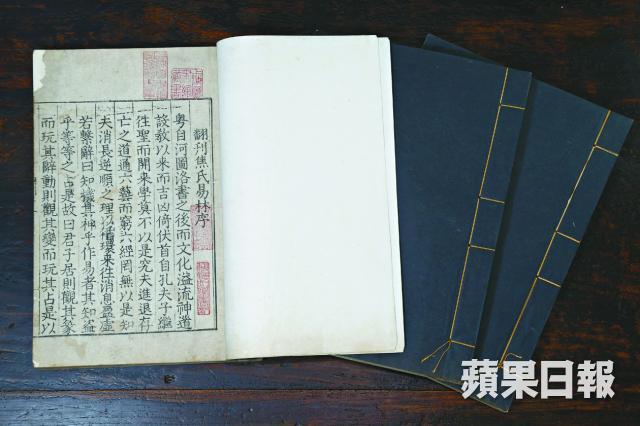 翻刊焦氏易林序
粵自河圖洛書之後而文化溢流神道
設教以来而吉凶倚伏首自孔夫子繼
往聖而開来學莫不以是究夫進退存
亡之道通六藝而窮六經罔無以是知
夫消長逆順之理以循環来往消息盈虛
若繫辭曰知機其神乎作易者其知盜
乎等之占是故曰君子居則觀其象
而玩其辭動則觀其變而玩其占是以
蘋果日報